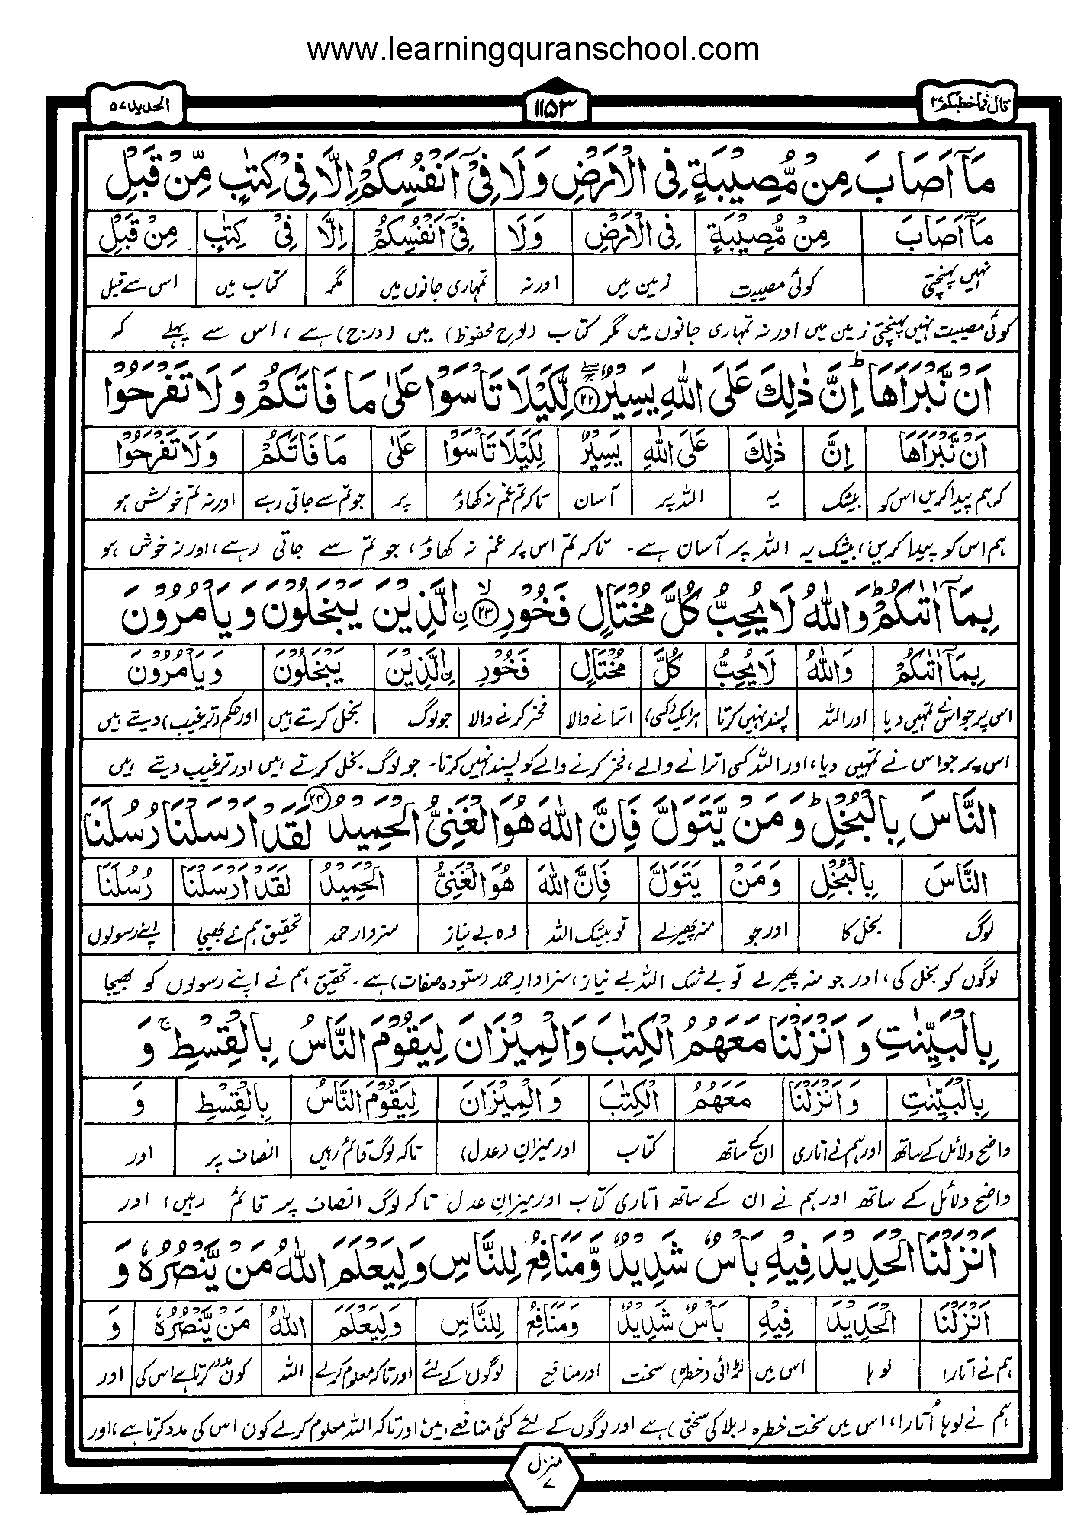 www.learningquranschool.com
الحدید ۵۷
۱۱۵۳
قال فما خطبکم ۲۷
مَآ اَصَابَ مِنْ مُّصِیْبَةٍ فِی الْاَرْضِ وَلَا فِیْۤ اَنْفُسِکُمْ اِلَّا فِیْ کِتٰبٍ مِّنْ قَبْلِ
مَآ اَصَابَ مِنْ مُّصِیْبَةٍ فِی الْاَرْضِ وَلَا فِیْۤ اَنْفُسِکُمْ اِلَّا فِیْ کِتٰبٍ مِنْ قَبْلِ
نہیں پہنچتی کوئی مصیبت زمین میں اور نہ تمہاری جانوں میں مگر کتاب میں اس سے قبل
کوئی مصیبت نہیں پہنچتی زمین میں اور نہ تمہاری جانوں میں مگر کتاب (لوح محفوظ) میں (درج) ہے، اس سے پہلے کہ
اَنْ نَّبْرَاَهَا ؕ اِنَّ ذٰلِكَ عَلَی اللهِ یَسِیْرٌ ﴿۲۲﴾ لِّکَیْلَا تَاْسَوْا عَلٰی مَا فَاتَکُمْ وَلَا تَفْرَحُوْا
اَنْ نَّبْرَاَهَا اِنَّ ذٰلِكَ عَلَی اللهِ یَسِیْرٌ لِکَیْلَا تَاْسَوْا عَلٰی مَا فَاتَکُمْ وَلَا تَفْرَحُوْا
کہ ہم پیدا کریں اس کو بیشک یہ اللہ پر آسان تاکہ تم غم نہ کھاؤ پر جو تم سے جاتی رہے اور نہ تم خوش ہو
ہم اس کو پیدا کریں، بیشک یہ اللہ پر آسان ہے۔ تاکہ تم اس پر غم نہ کھاؤ، جو تم سے جاتی رہے، اور نہ خوش ہو
بِمَآ اٰتٰکُمْ ؕ وَاللهُ لَا یُحِبُّ کُلَّ مُخْتَالٍ فَخُوْرِ ﴿۲۳﴾ ۙ نِ الَّذِیْنَ یَبْخَلُوْنَ وَیَاْمُرُوْنَ
بِمَآ اٰتٰکُمْ وَاللهُ لَا یُحِبُّ کُلَّ مُخْتَالٍ فَخُوْرِ نِ الَّذِیْنَ یَبْخَلُوْنَ وَیَاْمُرُوْنَ
اس پر جو اس نے تمہیں دیا اور اللہ پسند نہیں کرتا ہر ایک (کسی) اترانے والا فخر کرنے والا جو لوگ بخل کرتے ہیں اور حکم (ترغیب) دیتے ہیں
اس پر جو اس نے تمہیں دیا، اور اللہ کسی اترانے والے، فخر کرنے والے کو پسند نہیں کرتا۔ جو لوگ بخل کرتے ہیں اور ترغیب دیتے ہیں
النَّاسَ بِالْبُخْلِ ؕ وَمَنْ یَّتَوَلَّ فَاِنَّ اللهَ هُوَ الْغَنِیُّ الْحَمِیْدُ ﴿۲۴﴾ لَقَدْ اَرْسَلْنَا رُسُلَنَا
النَّاسَ بِالْبُخْلِ وَمَنْ یَتَوَلَّ فَاِنَّ اللهَ هُوَ الْغَنِیُّ الْحَمِیْدُ لَقَدْ اَرْسَلْنَا رُسُلَنَا
لوگ بخل کا اور جو منہ پھیر لے تو بیشک اللہ وہ بے نیاز سزاوار حمد تحقیق ہم نے بھیجا اپنے رسولوں
لوگوں کو بخل کی، اور جو منہ پھیر لے تو بے شک اللہ بے نیاز، سزاوارِ حمد (ستودہ صفات) ہے۔ تحقیق ہم نے اپنے رسولوں کو بھیجا
بِالْبَیِّنٰتِ وَ اَنْزَلْنَا مَعَهُمُ الْکِتٰبَ وَالْمِیْزَانَ لِیَقُوْمَ النَّاسُ بِالْقِسْطِ ۚ وَ
بِالْبَیِّنٰتِ وَاَنْزَلْنَا مَعَهُمُ الْکِتٰبَ وَالْمِیْزَانَ لِیَقُوْمَ النَّاسُ بِالْقِسْطِ وَ
واضح دلائل کے ساتھ اور ہم نے اتاری ان کے ساتھ کتاب اور میزانِ (عدل) تاکہ لوگ قائم رہیں انصاف پر اور
واضح دلائل کے ساتھ اور ہم نے ان کے ساتھ اتاری کتاب اور میزانِ عدل تاکہ لوگ انصاف پر قائم رہیں، اور
اَنْزَلْنَا الْحَدِیْدَ فِیْهِ بَاْسٌ شَدِیْدٌ وَّمَنَافِعُ لِلنَّاسِ وَلِیَعْلَمَ اللهُ مَنْ یَّنْصُرُهٗ وَ
اَنْزَلْنَا الْحَدِیْدَ فِیْهِ بَاْسٌ شَدِیْدٌ وَمَنَافِعُ لِلنَّاسِ وَلِیَعْلَمَ اللهُ مَنْ یَّنْصُرُهٗ وَ
ہم نے اتارا لوہا اس میں لڑائی (خطرہ) سخت اور منافع لوگوں کے لئے اور تاکہ معلوم کرلے اللہ کون مدد کرتا ہے اس کی اور
ہم نے لوہا اُتارا، اس میں سخت خطرہ (بلا کی سختی) ہے اور لوگوں کے لئے کئی منافعے ہیں، اور تاکہ اللہ معلوم کرلے کون اس کی مدد کرتا ہے، اور
منزل ۷